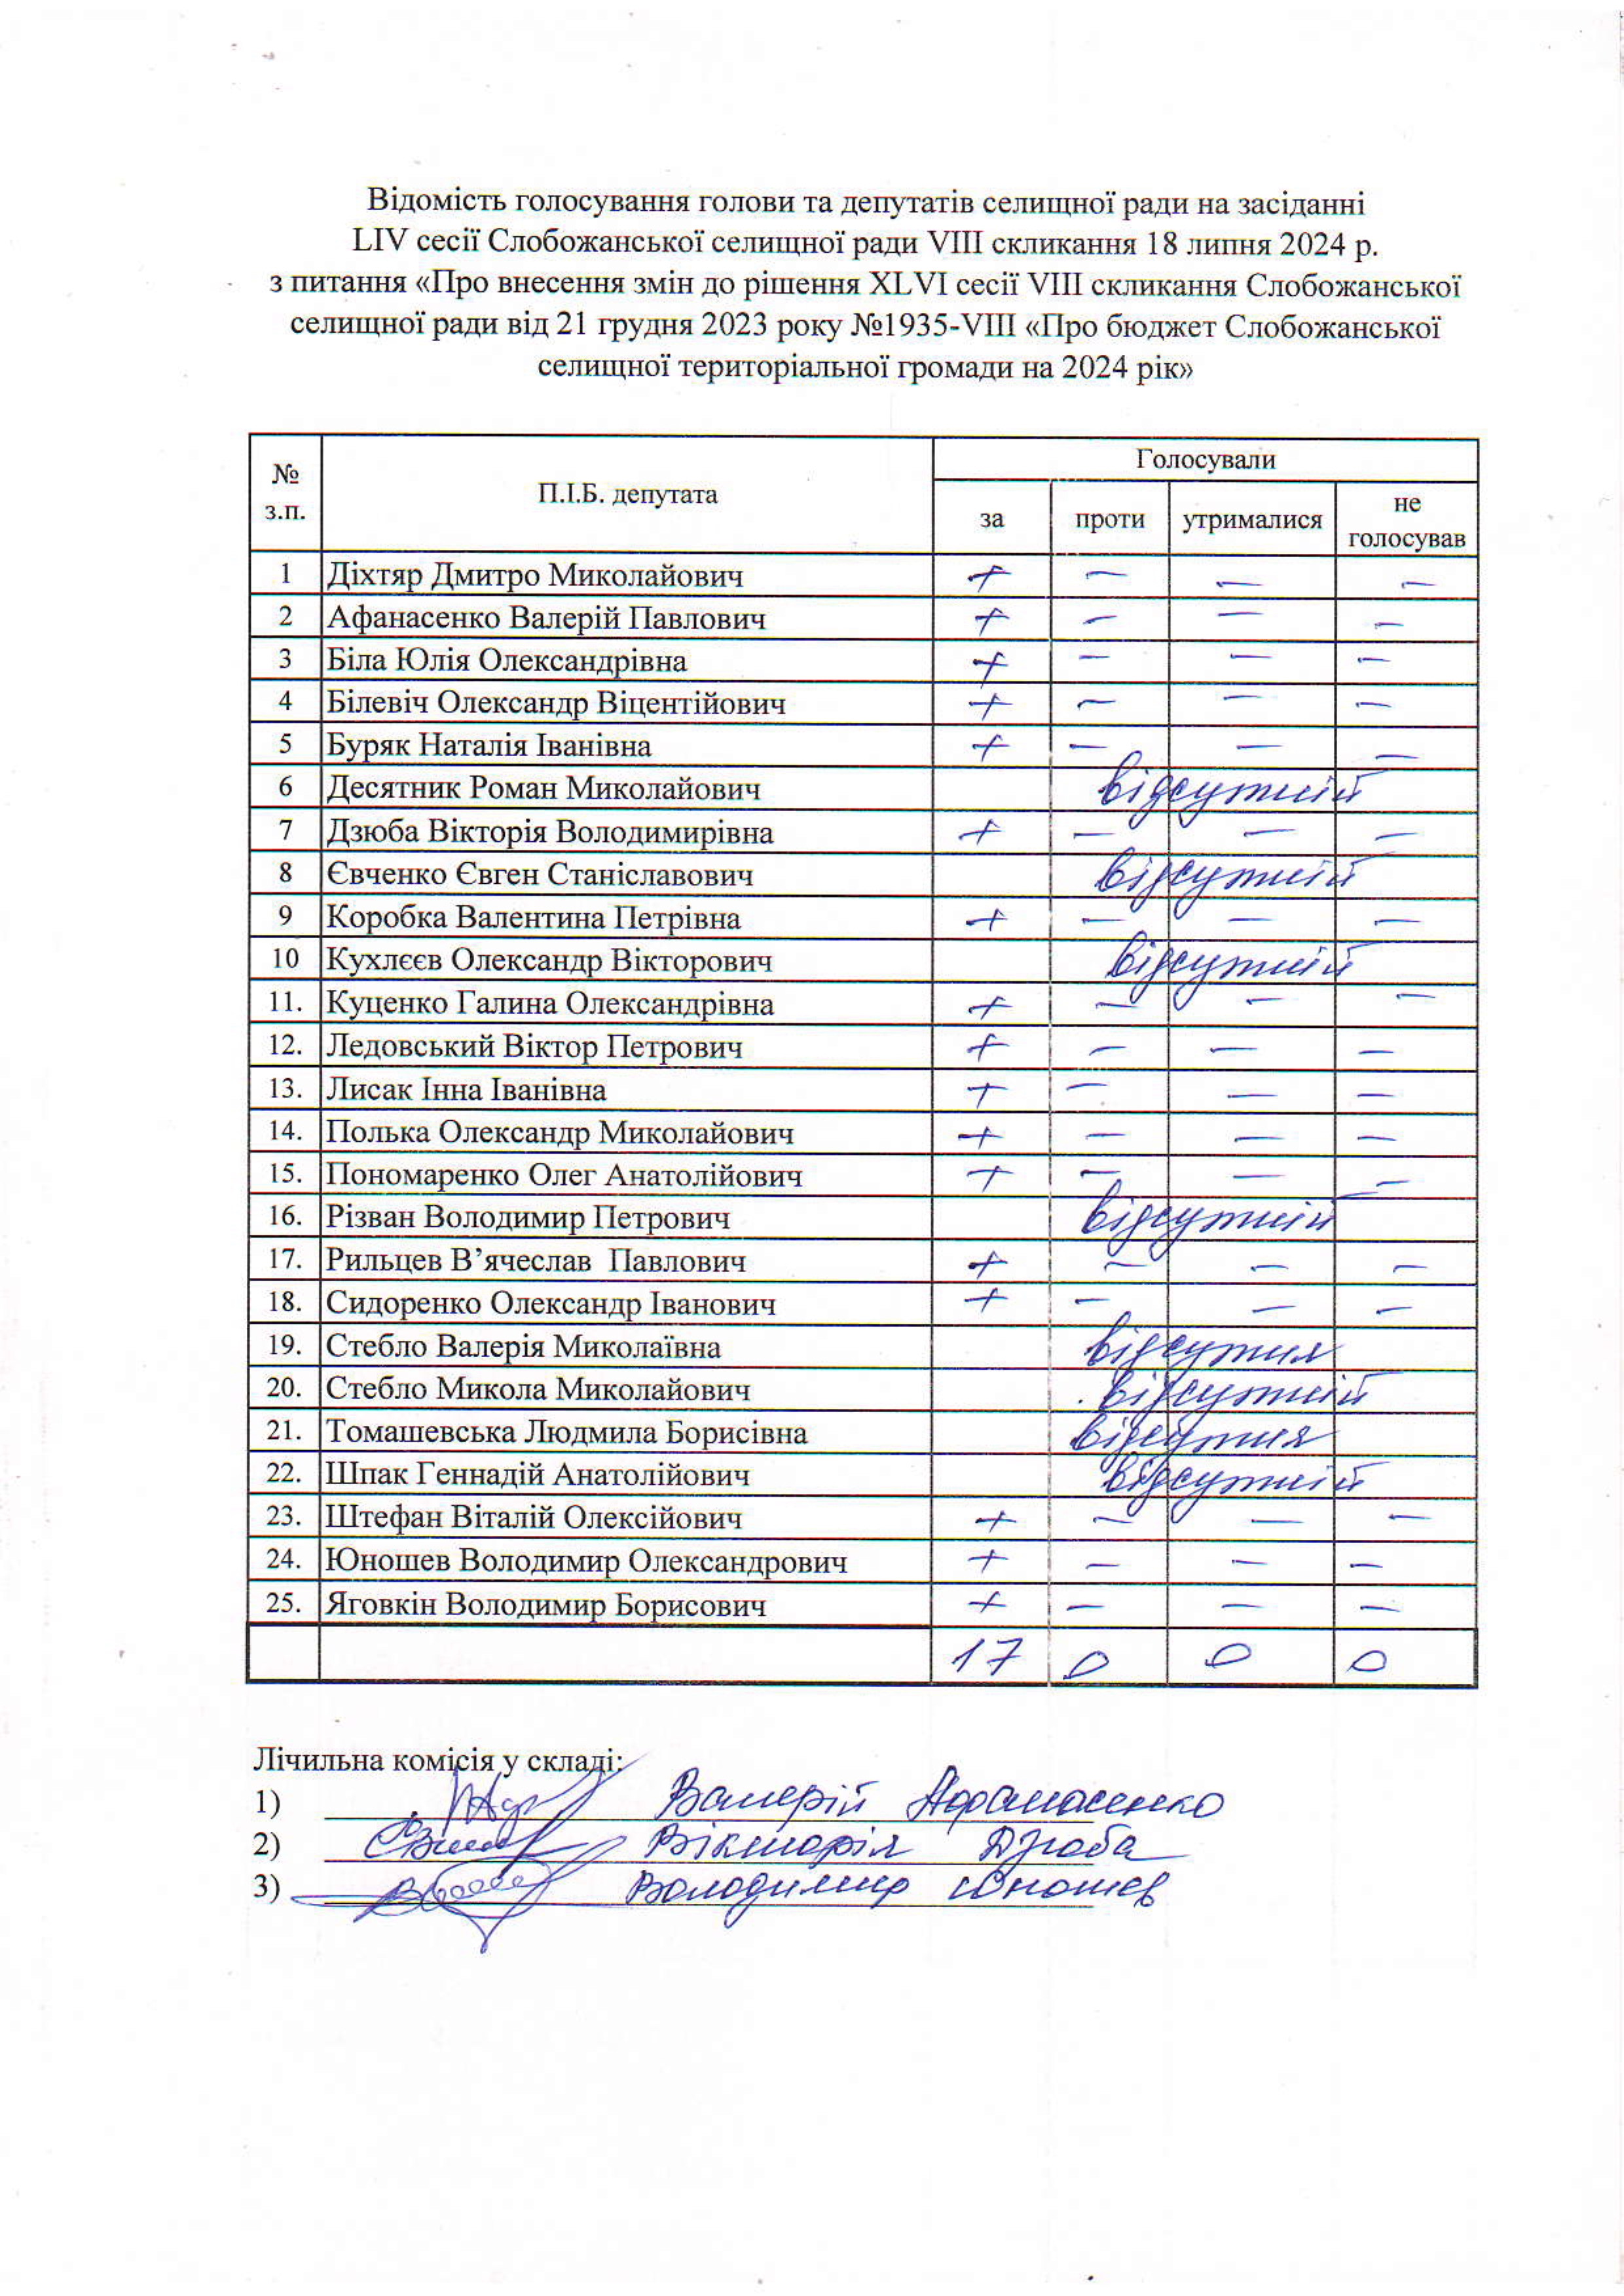 Відомість голосування голови та депутатів селищної ради на засіданні
LIV сесії Слобожанської селищної ради VIII скликання 18 липня 2024 р.
з питання «Про внесення змін до рішення XLVI сесії VIII скликання Слобожанської
селищної ради від 21 грудня 2023 року №1935-VIII «Про бюджет Слобожанської
селищної територіальної громади на 2024 рік»
№ з.п. П.І.Б. депутата Голосували
за проти утрималися не голосував
1 Діхтяр Дмитро Миколайович + — — —
2 Афанасенко Валерій Павлович + — — —
3 Біла Юлія Олександрівна + — — —
4 Білевіч Олександр Віцентійович + — — —
5 Буряк Наталія Іванівна + — — —
6 Десятник Роман Миколайович відсутній
7 Дзюба Вікторія Володимирівна + — — —
8 Євченко Євген Станіславович відсутній
9 Коробка Валентина Петрівна + — — —
10 Кухлєєв Олександр Вікторович відсутній
11. Куценко Галина Олександрівна + — — —
12. Ледовський Віктор Петрович + — — —
13. Лисак Інна Іванівна + — — —
14. Полька Олександр Миколайович + — — —
15. Пономаренко Олег Анатолійович + — — —
16. Різван Володимир Петрович відсутній
17. Рильцев В’ячеслав Павлович + — — —
18. Сидоренко Олександр Іванович + — — —
19. Стебло Валерія Миколаївна відсутня
20. Стебло Микола Миколайович відсутній
21. Томашевська Людмила Борисівна відсутня
22. Шпак Геннадій Анатолійович відсутній
23. Штефан Віталій Олексійович + — — —
24. Юношев Володимир Олександрович + — — —
25. Яговкін Володимир Борисович + — — —
17 0 0 0
Лічильна комісія у складі:
1) Валерій Афанасенко
2) Вікторія Дзюба
3) Володимир Юношев